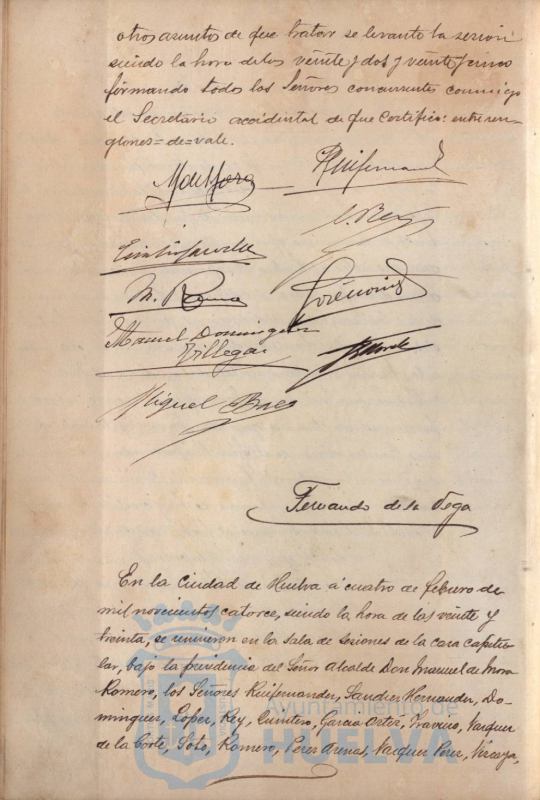 otros asuntos de que tratar se levantó la sesión
siendo la hora de las veinte y dos y veinte y cinco
firmando todos los Señores concurrentes conmigo
el Secretario accidental de que certifico: entre ren-
glones = de = vale.
M. de Mora
Ruifernand
J. Rey
M. Romo
Manuel Dominguez
Villegas
Miguel Baez
Fernando de la Vega
En la Ciudad de Huelva á cuatro de febrero de
mil novecientos catorce, siendo la hora de las veinte y
treinta, se reunieron en la sala de sesiones de la casa capitu-
lar, bajo la presidencia del Señor Alcalde Don Manuel de Mora
Romero, los Señores Ruifernandez, Hernandez, Do-
minguez, Lopez, Rey, Quintero, Garcia Ortiz, Vazquez
de la Corte, Soto, Romero, Perez Arenas, Vazquez Perez, Vizcaya,
Ayuntamiento de
HUELVA